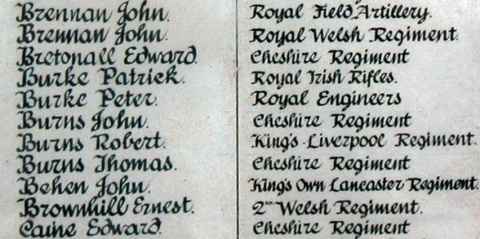 Brennan John. Royal Field Artillery.
Brennan John. Royal Welsh Regiment.
Bretonall Edward. Cheshire Regiment
Burke Patrick. Royal Irish Rifles.
Burke Peter. Royal Engineers
Burns John. Cheshire Regiment
Burns Robert. King's Liverpool Regiment.
Burns Thomas. Cheshire Regiment
Behen John. King's Own Lancaster Regiment.
Brownhill Ernest. 2nd Welsh Regiment.
Caine Edward. Cheshire Regiment